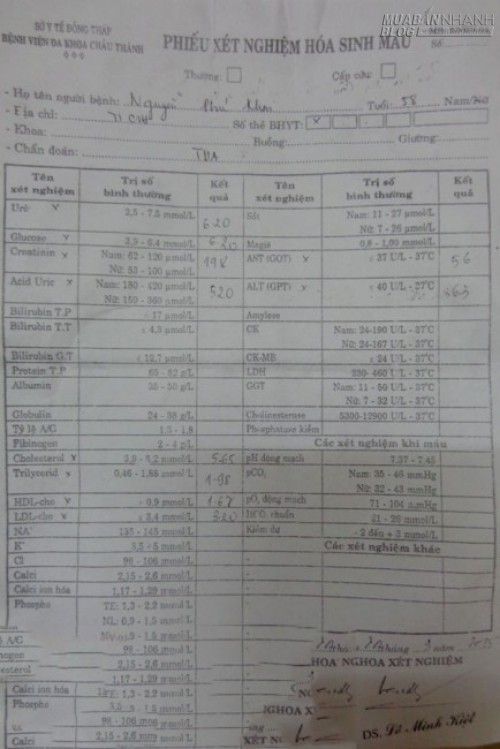 MUABANNHANH
BLOG
SỞ Y TẾ ĐỒNG THÁP
BỆNH VIỆN ĐA KHOA CHÂU THÀNH
PHIẾU XÉT NGHIỆM HÓA SINH MÁU
Số:
Thường: Cấp cứu:
- Họ tên người bệnh: Nguyễn Tuổi: 58 Nam/Nữ
- Địa chỉ: Số thẻ BHYT:
- Khoa: Buồng: Giường:
- Chẩn đoán: THA
Tên xét nghiệm Trị số bình thường Kết quả Tên xét nghiệm Trị số bình thường Kết quả
Urê v 2,5 - 7,5 mmol/L 6.20 Sắt Nam: 11 - 27 µmol/L
Nữ: 7 - 26 µmol/L
Glucose v 3,5 - 6,4 mmol/L Magie 0,8 - 1,00 mmol/L
Creatinin v Nam: 62 - 120 µmol/L 198 AST (GOT) v ≤ 37 U/L - 37°C 56
Nữ: 53 - 100 µmol/L
Acid Uric v Nam: 180 - 420 µmol/L 520 ALT (GPT) v ≤ 40 U/L - 37°C
Nữ: 150 - 360 µmol/L
Bilirubin T.P ≤ 17 µmol/L Amylase
Bilirubin T.T ≤ 4,3 µmol/L CK Nam: 24-190 U/L - 37°C
Nữ: 24-167 U/L - 37°C
Bilirubin G.T ≤ 12,7 µmol/L CK-MB ≤ 24 U/L - 37°C
Protein T.P 65 - 82 g/L LDH 230- 460 U/L - 37°C
Albumin 35 - 50 g/L GGT Nam: 11 - 50 U/L - 37°C
Nữ: 7 - 32 U/L - 37°C
Globulin 24 - 38 g/L Cholinesterase 5300-12900 U/L - 37°C
Tỷ lệ A/G 1,3 - 1,8 Phosphatase kiềm
Fibinogen 2 - 4 g/L Các xét nghiệm khí máu
Cholesterol v 3,9 - 5,2 mmol/L 5.65 pH động mạch 7,37 - 7,45
Trilycerid v 0,46 - 1,88 mmol/L 1.98 pCO₂ Nam: 35 - 46 mmHg
Nữ: 32 - 43 mmHg
HDL-cho v ≥ 0,9 mmol/L 1.67 pO₂ động mạch 71 - 104 mmHg
LDL-cho v ≤ 3,4 mmol/L 3.20 HCO₃ chuẩn 21 - 26 mmol/L
NA⁺ 135 - 145 mmol/L Kiềm dư - 2 đến + 3 mmol/L
K⁺ 3,5 - 5 mmol/L Các xét nghiệm khác
Cl 98 - 106 mmol/L
Calci 2,15 - 2,6 mmol/L
Calci ion hóa 1,17 - 1,29 mmol/L
Phospho TE: 1,3 - 2,2 mmol/L
NL: 0,9 - 1,5 mmol/L
A/G
nogen 98 - 106 mmol/L 3 năm
esterol 2,15 - 2,6 mmol/L KHOA XÉT NGHIỆM
1,17 - 1,29 mmol/L
Calci ion hóa TE: 1,3 - 2,2 mmol/L
Phospho mmol/L
98 - 106 mmol/L
Calci 2,15 - 2,6 mmol/L XÉT DS. Lê Minh Kiệt